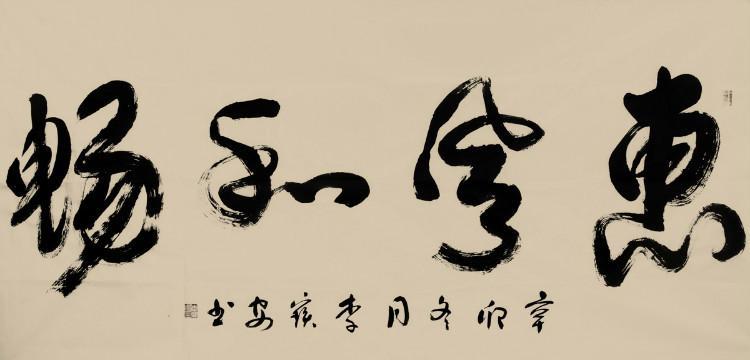 惠風和暢
辛卯冬月李书